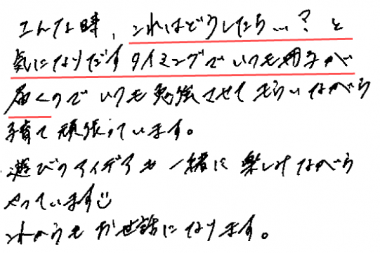 こんな時、これはどうしたら…？と
気になりだすタイミングでいつも冊子が
届くのでいつも勉強させてもらいながら
子育て頑張っています。
遊びのアイデアも一緒に楽しみながら
やっています
これからもお世話になります。